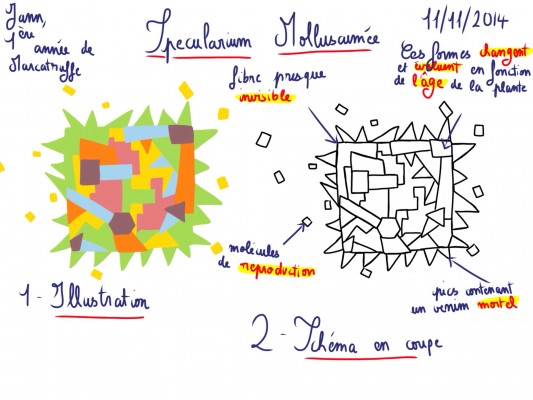 Jann,
1ère
année de
Marcatruffe
Specularium Molluscumée
11/11/2014
Ces formes changent
et évoluent en fonction
de l'âge de la plante
fibre presque
invisible
molécules
de reproduction
pics contenant
un venim mortel
1 - Illustration
2 - Schéma en coupe